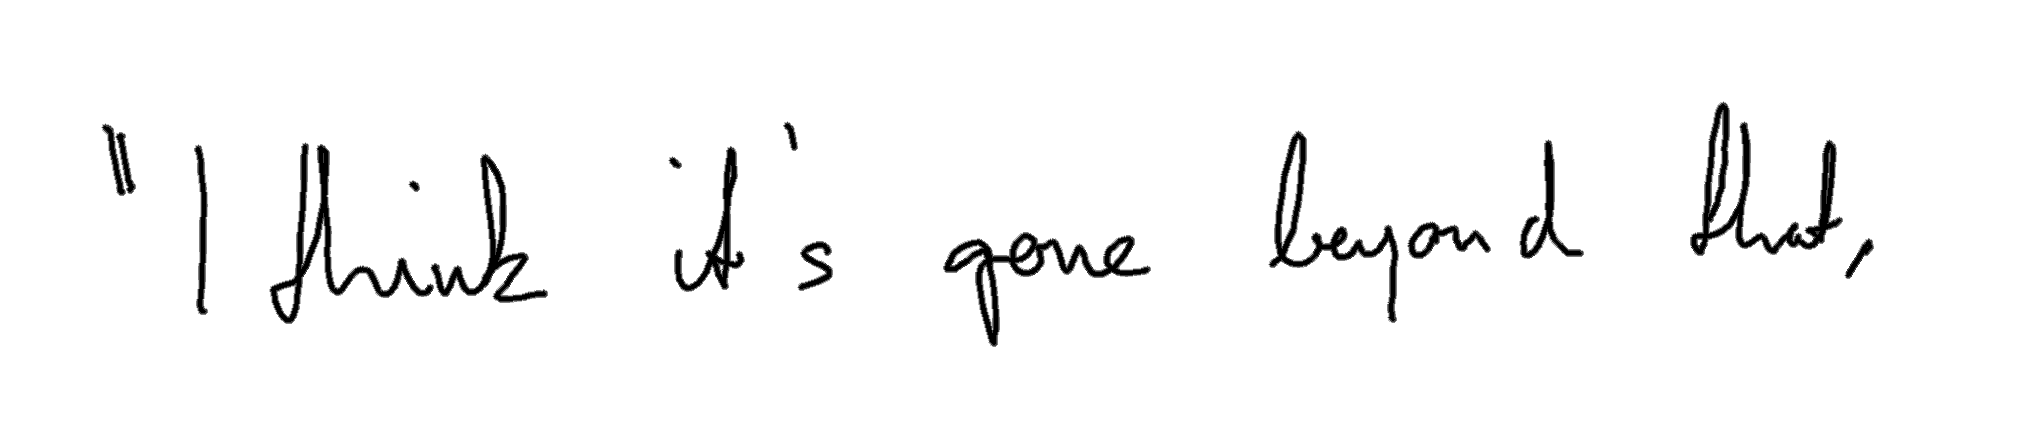 "I think it's gone beyond that,